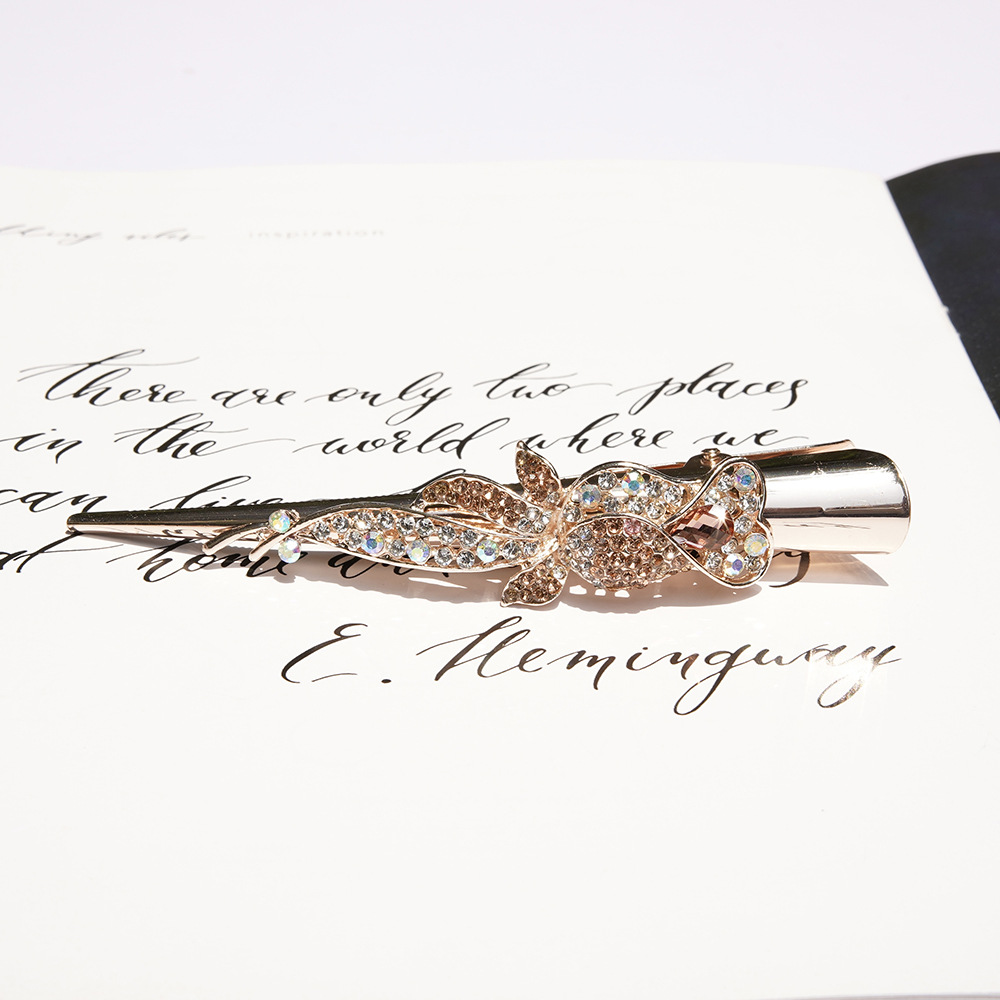 inspiration
there are only two places
in the world where we
can live
home and
E. Hemingway